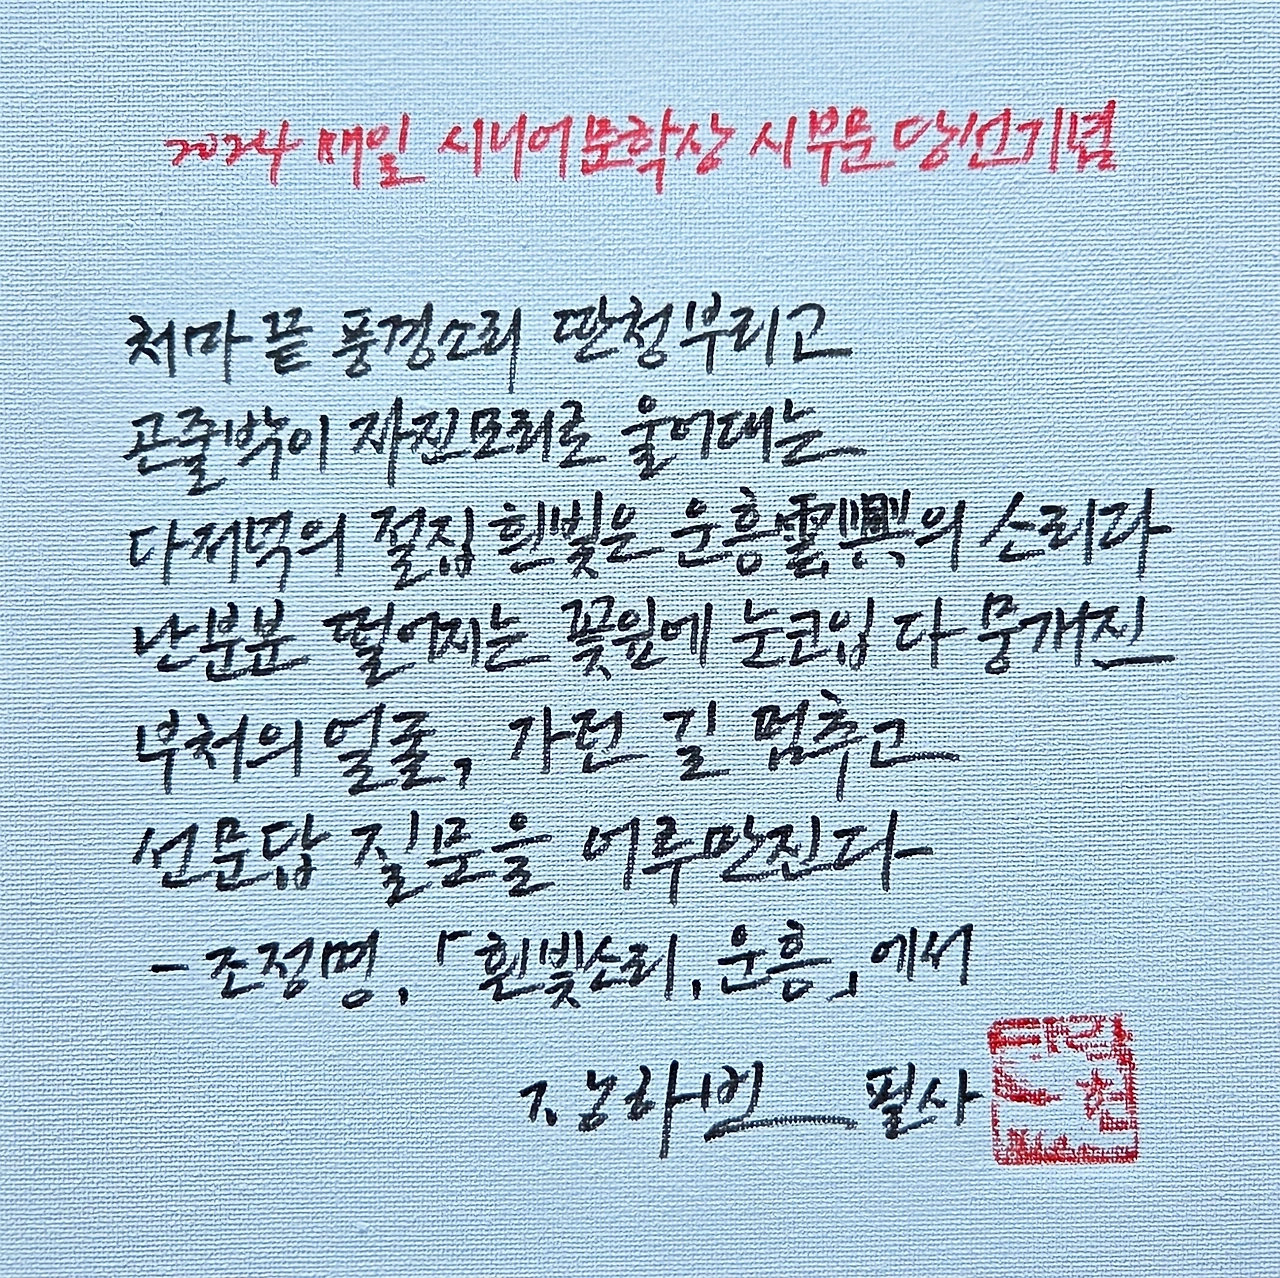 2024 매일 시니어문학상 시부문 당선기념
처마 끝 풍경소리 딴청부리고
곤줄박이 자진모리로 울어대는
다저녁의 절집 흰빛은 운흥雲興의 소리다
난분분 떨어지는 꽃잎에 눈코입 다 뭉개진
부처의 얼굴, 가던 길 멈추고
선문답 질문을 어루만진다
- 조정명, 「흰빛소리, 운흥」에서
장하빈 필사